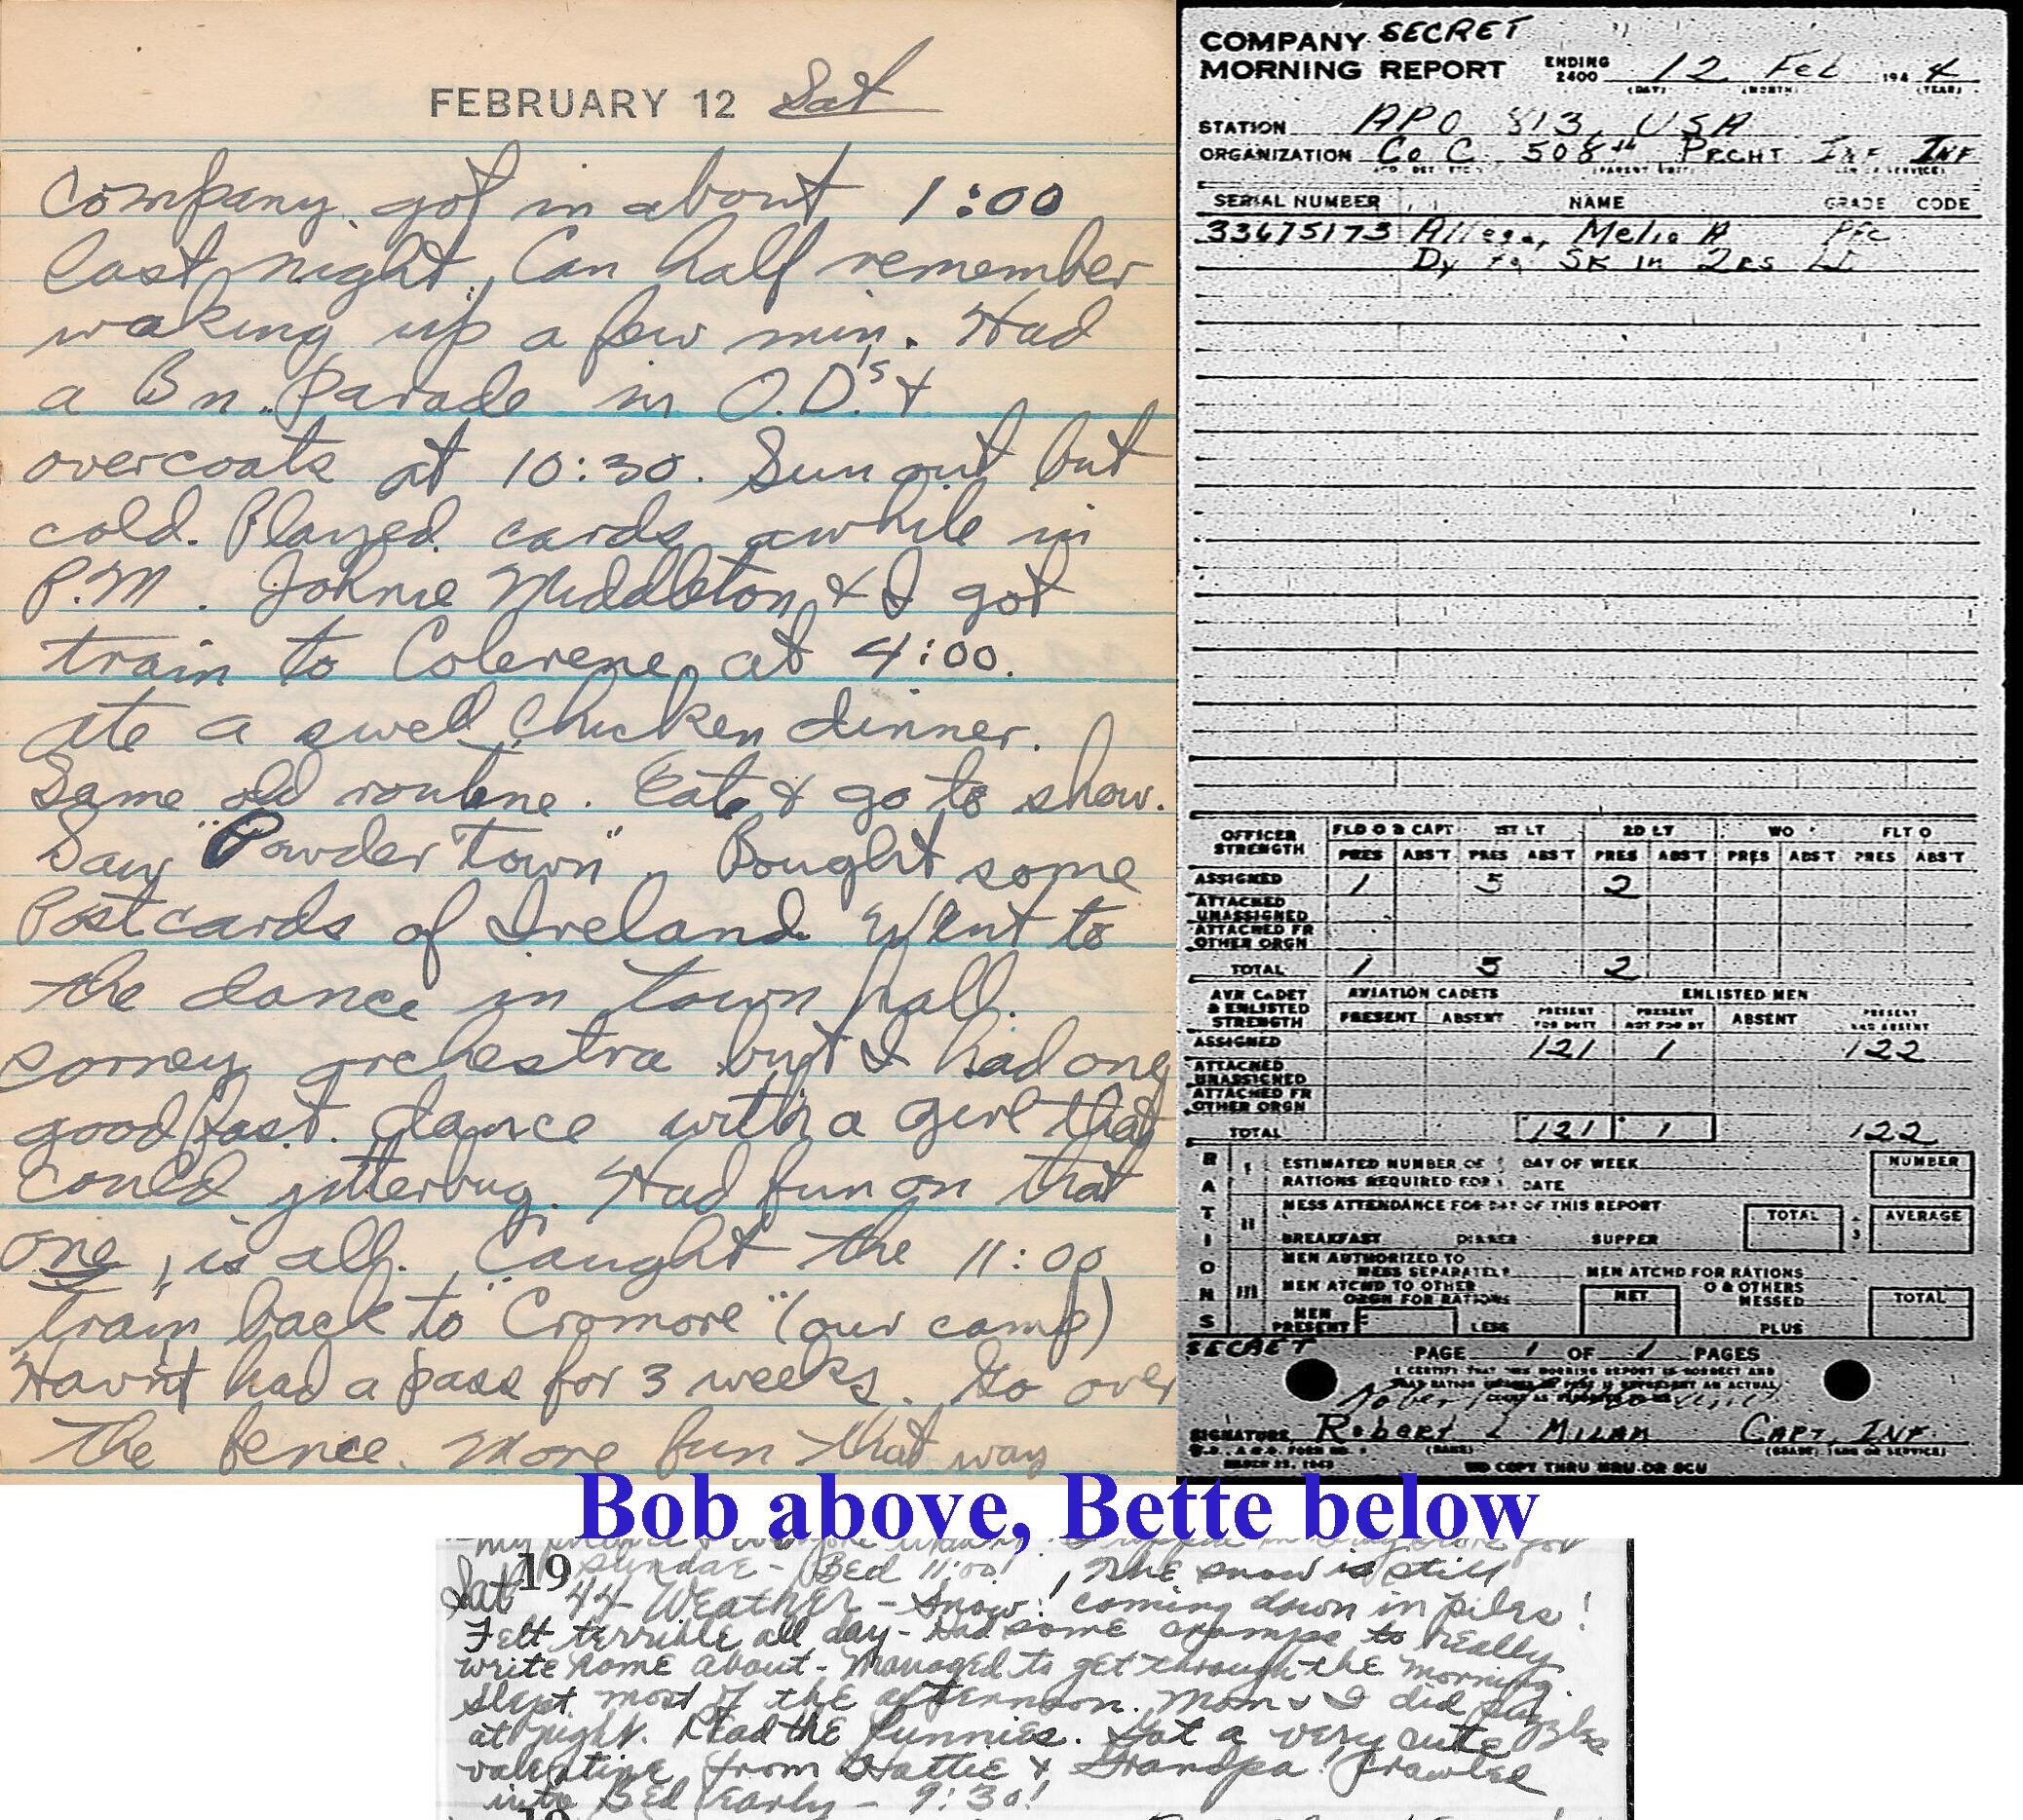 FEBRUARY 12 Sat
Company got in about 1:00
last night. Can half remember
waking up a few min. Had
a Bn. Parade in O.D.'s &
overcoats at 10:30. Sun out but
cold. Played cards awhile in
P.M. Johnie Middleton & I got
train to Colerene at 4:00.
ate a swell chicken dinner.
Same old routine. Eat & go to show.
Saw "Powder Town". Bought some
Postcards of Ireland. Went to
the dance in town hall.
corney orchestra but I had one
good fast dance with a girl that
could jitterbug. Had fun on that
one, is all. Caught the 11:00
train back to "Cromore" (our camp)
Havn't had a pass for 3 weeks. Go over
the fence. More fun that way
COMPANY SECRET
MORNING REPORT ENDING 2400 12 Feb 194 4
(DAY) (MONTH) (YEAR)
STATION APO 813, USA
ORGANIZATION Co C 508th Prcht Inf Inf
SERIAL NUMBER NAME GRADE CODE
33675173 Allega, Melio A Pfc
Dy to Sk in 2es LD
OFFICER STRENGTH FLD O & CAPT 1ST LT 2D LT WO FLT O
PRES ABS'T PRES ABS'T PRES ABS'T PRES ABS'T PRES ABS'T
ASSIGNED 1 5 2
ATTACHED UNASSIGNED
ATTACHED FR OTHER ORGN
TOTAL 1 5 2
AVN CADET & ENLISTED STRENGTH AVIATION CADETS ENLISTED MEN
PRESENT ABSENT PRESENT FOR DUTY PRESENT NOT FOR DY ABSENT PRESENT AND ABSENT
ASSIGNED 121 1 122
ATTACHED UNASSIGNED
ATTACHED FR OTHER ORGN
TOTAL 121 1 122
RATIONS
I ESTIMATED NUMBER OF DAY OF WEEK NUMBER
RATIONS REQUIRED FOR DATE
II MESS ATTENDANCE FOR DAY OF THIS REPORT TOTAL ÷3 AVERAGE
BREAKFAST DINNER SUPPER
III MEN AUTHORIZED TO
MESS SEPARATELY MEN ATCHD FOR RATIONS
MEN ATCHD TO OTHER ORGN FOR RATIONS NET O & OTHERS MESSED TOTAL
MEN PRESENT LESS PLUS
SECRET PAGE 1 OF 1 PAGES
I CERTIFY THAT THIS MORNING REPORT IS CORRECT AND
SIGNATURE Robert L Milam Capt, Inf
(NAME)
W.D., A.G.O. FORM NO. 1
MARCH 23, 1943 WD COPY THRU MRU OR SCU
Bob above, Bette below
sundae - Bed 11:00!
19 44 Weather - Snow! The snow is still
Sat coming down in piles!
Felt terrible all day - had some cramps to really
write home about - Managed to get through the morning.
Slept most of the afternoon. Mom & I did puzzles
at night. Read the funnies. Got a very cute
valentine from Hattie & Grandpa! Crawled
into Bed Early - 9:30!